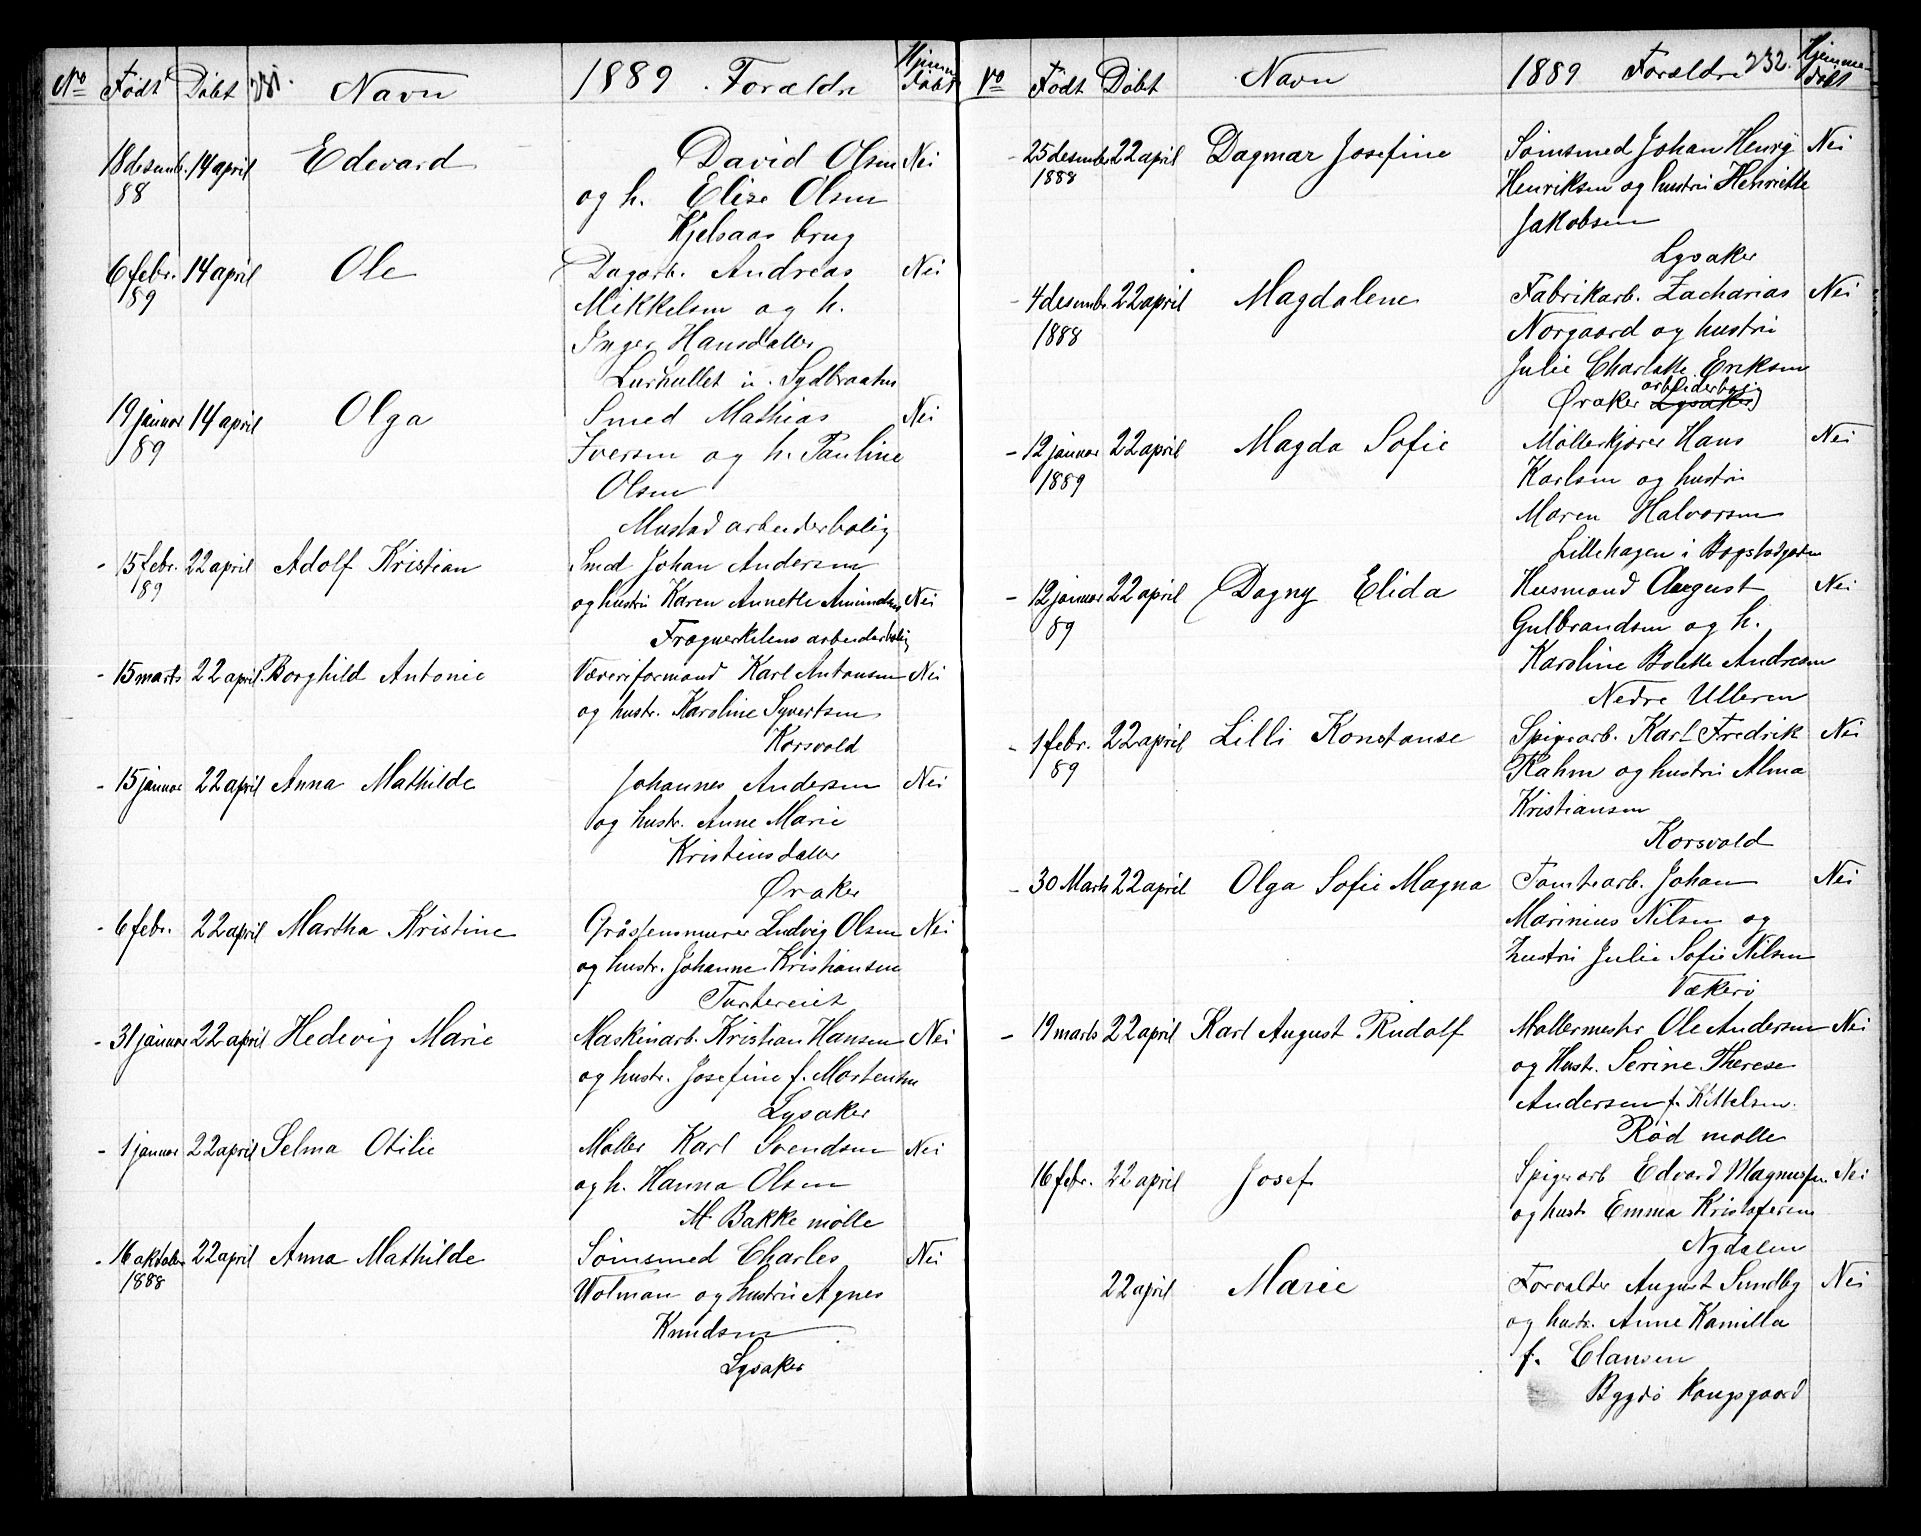 No Födt Döbt 231. Navn 1889 . Forældre Hjemmedöbt
18 desemb. 14 april Edevard David Olsen Nei
88 og h. Elise Olsen
Kjelsaas brug
6 febr. 14 april Ole Dagarb. Andreas Nei
89 Mikkelsen og h.
Inger Hansdatter
Lurhullet u. Sydbraaten
19 januar 14 april Olga Smed Mathias Nei
89 Iversen og h. Pauline
Olsen
Mustad arbeiderbolig
- 15 febr. 22 april Adolf Kristian Smed Johan Andersen
89 og hustru Karen Annette Amundsen Nei
arbeiderbolig
- 15 marts 22 april. Borghild Antonie Væveriformand Karl Antonsen Nei
og hustr. Karoline Syvertsen
Korsvold
- 15 januar 22 april Anna Mathilde Johannes Andersen Nei
og hustr. Anne Marie
Kristensdatter
Øraker
- 6 febr. 22 april Martha Kristine Gråstensmurer Ludvig Olsen Nei
og hustr. Johanne Kristiansen
- 31 januar 22 april Hedevig Marie Maskinarb. Kristian Hansen Nei
og hustr. Josefine f. Mortensen
Lysaker
- 1 januar 22 april Selma Otilie Møller Karl Svendsen Nei
og h. Hanna Olsen
M. Bakke mølle
- 16 oktober 22 april Anna Mathilde Sömsmed Charles Nei
1888 Wolman og hustru Agnes
Knudsen
Lysaker
No Födt Döbt Navn 1889 Forældre 232. Hjemmedöbt
- 25 desember 22 april Dagmar Josefine Sömsmed Johan Henry Nei
1888 Henriksen og hustru Henriette
Jakobsen
Lysaker
- 4 desember 22 april Magdalene Fabrikarb. Zacharias Nei
1888 Norgaard og hustru
Julie Charlotte Eriksen
arbeiderbolig
Øraker Lysaker
- 12 januar 22 april Magda Sofie Møllerkjører Hans Nei
1889 Karlsen og hustru
Maren Halvorsen
Lillehagen i Bogstadgaden
- 12 januar 22 april Dagny Elida Husmand August Nei
89 Gulbrandsen og h.
Karoline Bolette Andresen
Nedre Ulleren
- 1 febr. 22 april Lilli Konstanse Spigerarb. Karl Fredrik Nei
89 Rahm og hustru Alma
Kristiansen
Korsvold
- 30 Marts 22 april Olga Sofie Magna Tomtearb. Johan Nei
Marinius Nilsen og
hustru Julie Sofie Nilsen
Vækerö
- 19 marts 22 april Karl August Rudolf Møllermester Ole Andersen Nei
og Hustr. Serine Therese
Andersen f. Kittelsen.
Röd mølle
16 febr. 22 april Josef Spigerarb Edvard Magnussen Nei
og hustr Emma Kristofersen
Nydalen
22 april Marie Forvalter August Sundby Nei
og hustr. Anne Kamilla
f. Clausen
Bygdö Kongsgaard